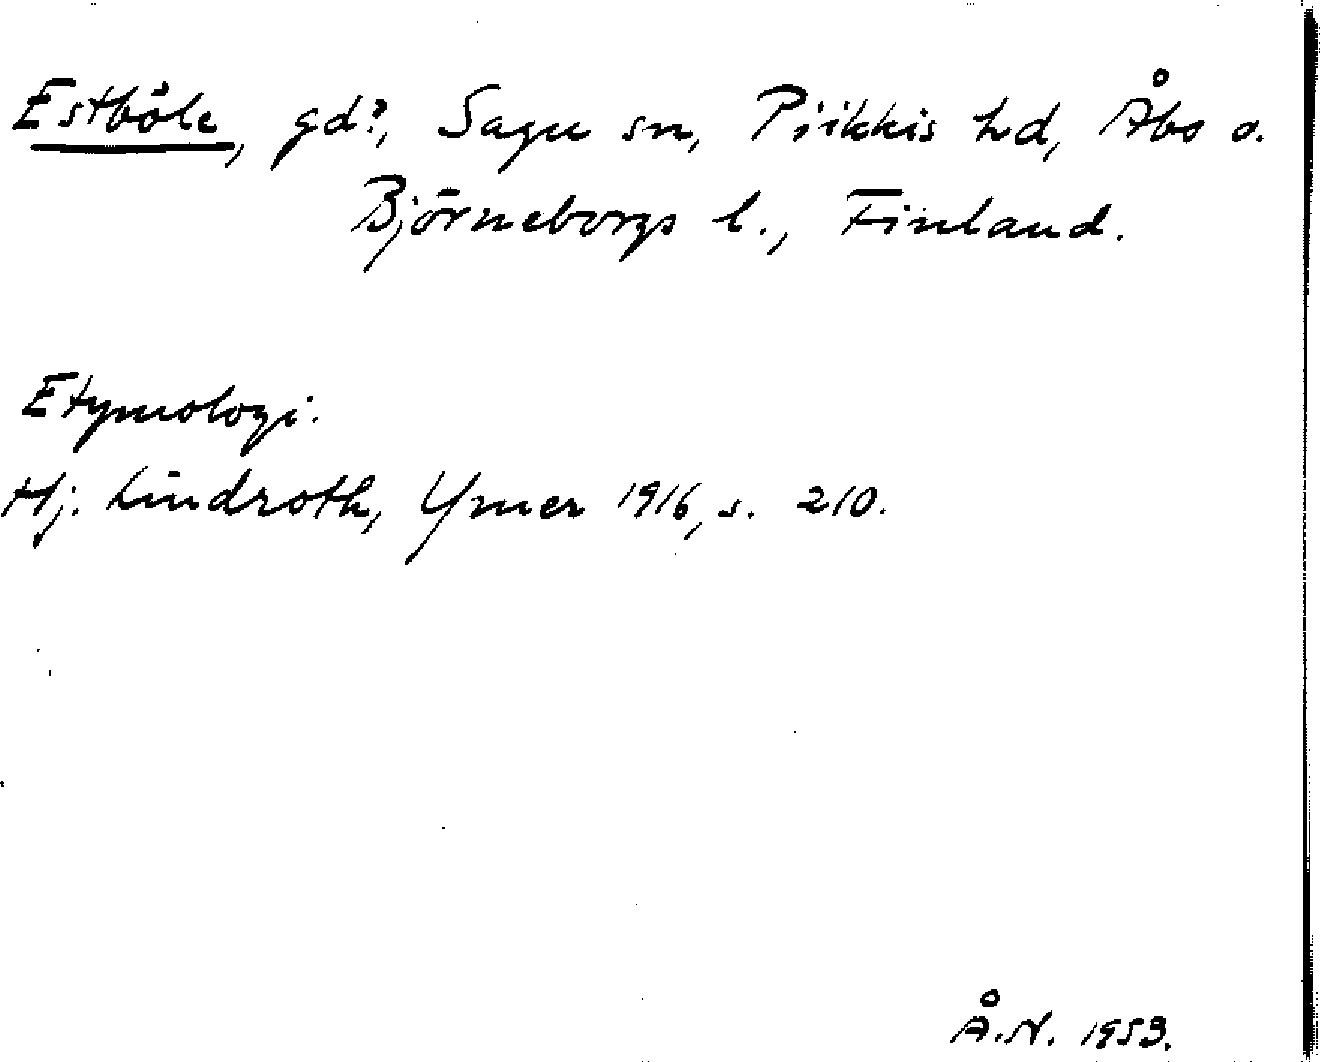 Estböle, gd?, Sagu sn, Piikkis hd, Åbo o.
Björneborgs l., Finland.
Etymologi.
Hj. Lindroth, Ymer 1916, s. 210.
Å.N. 1953.